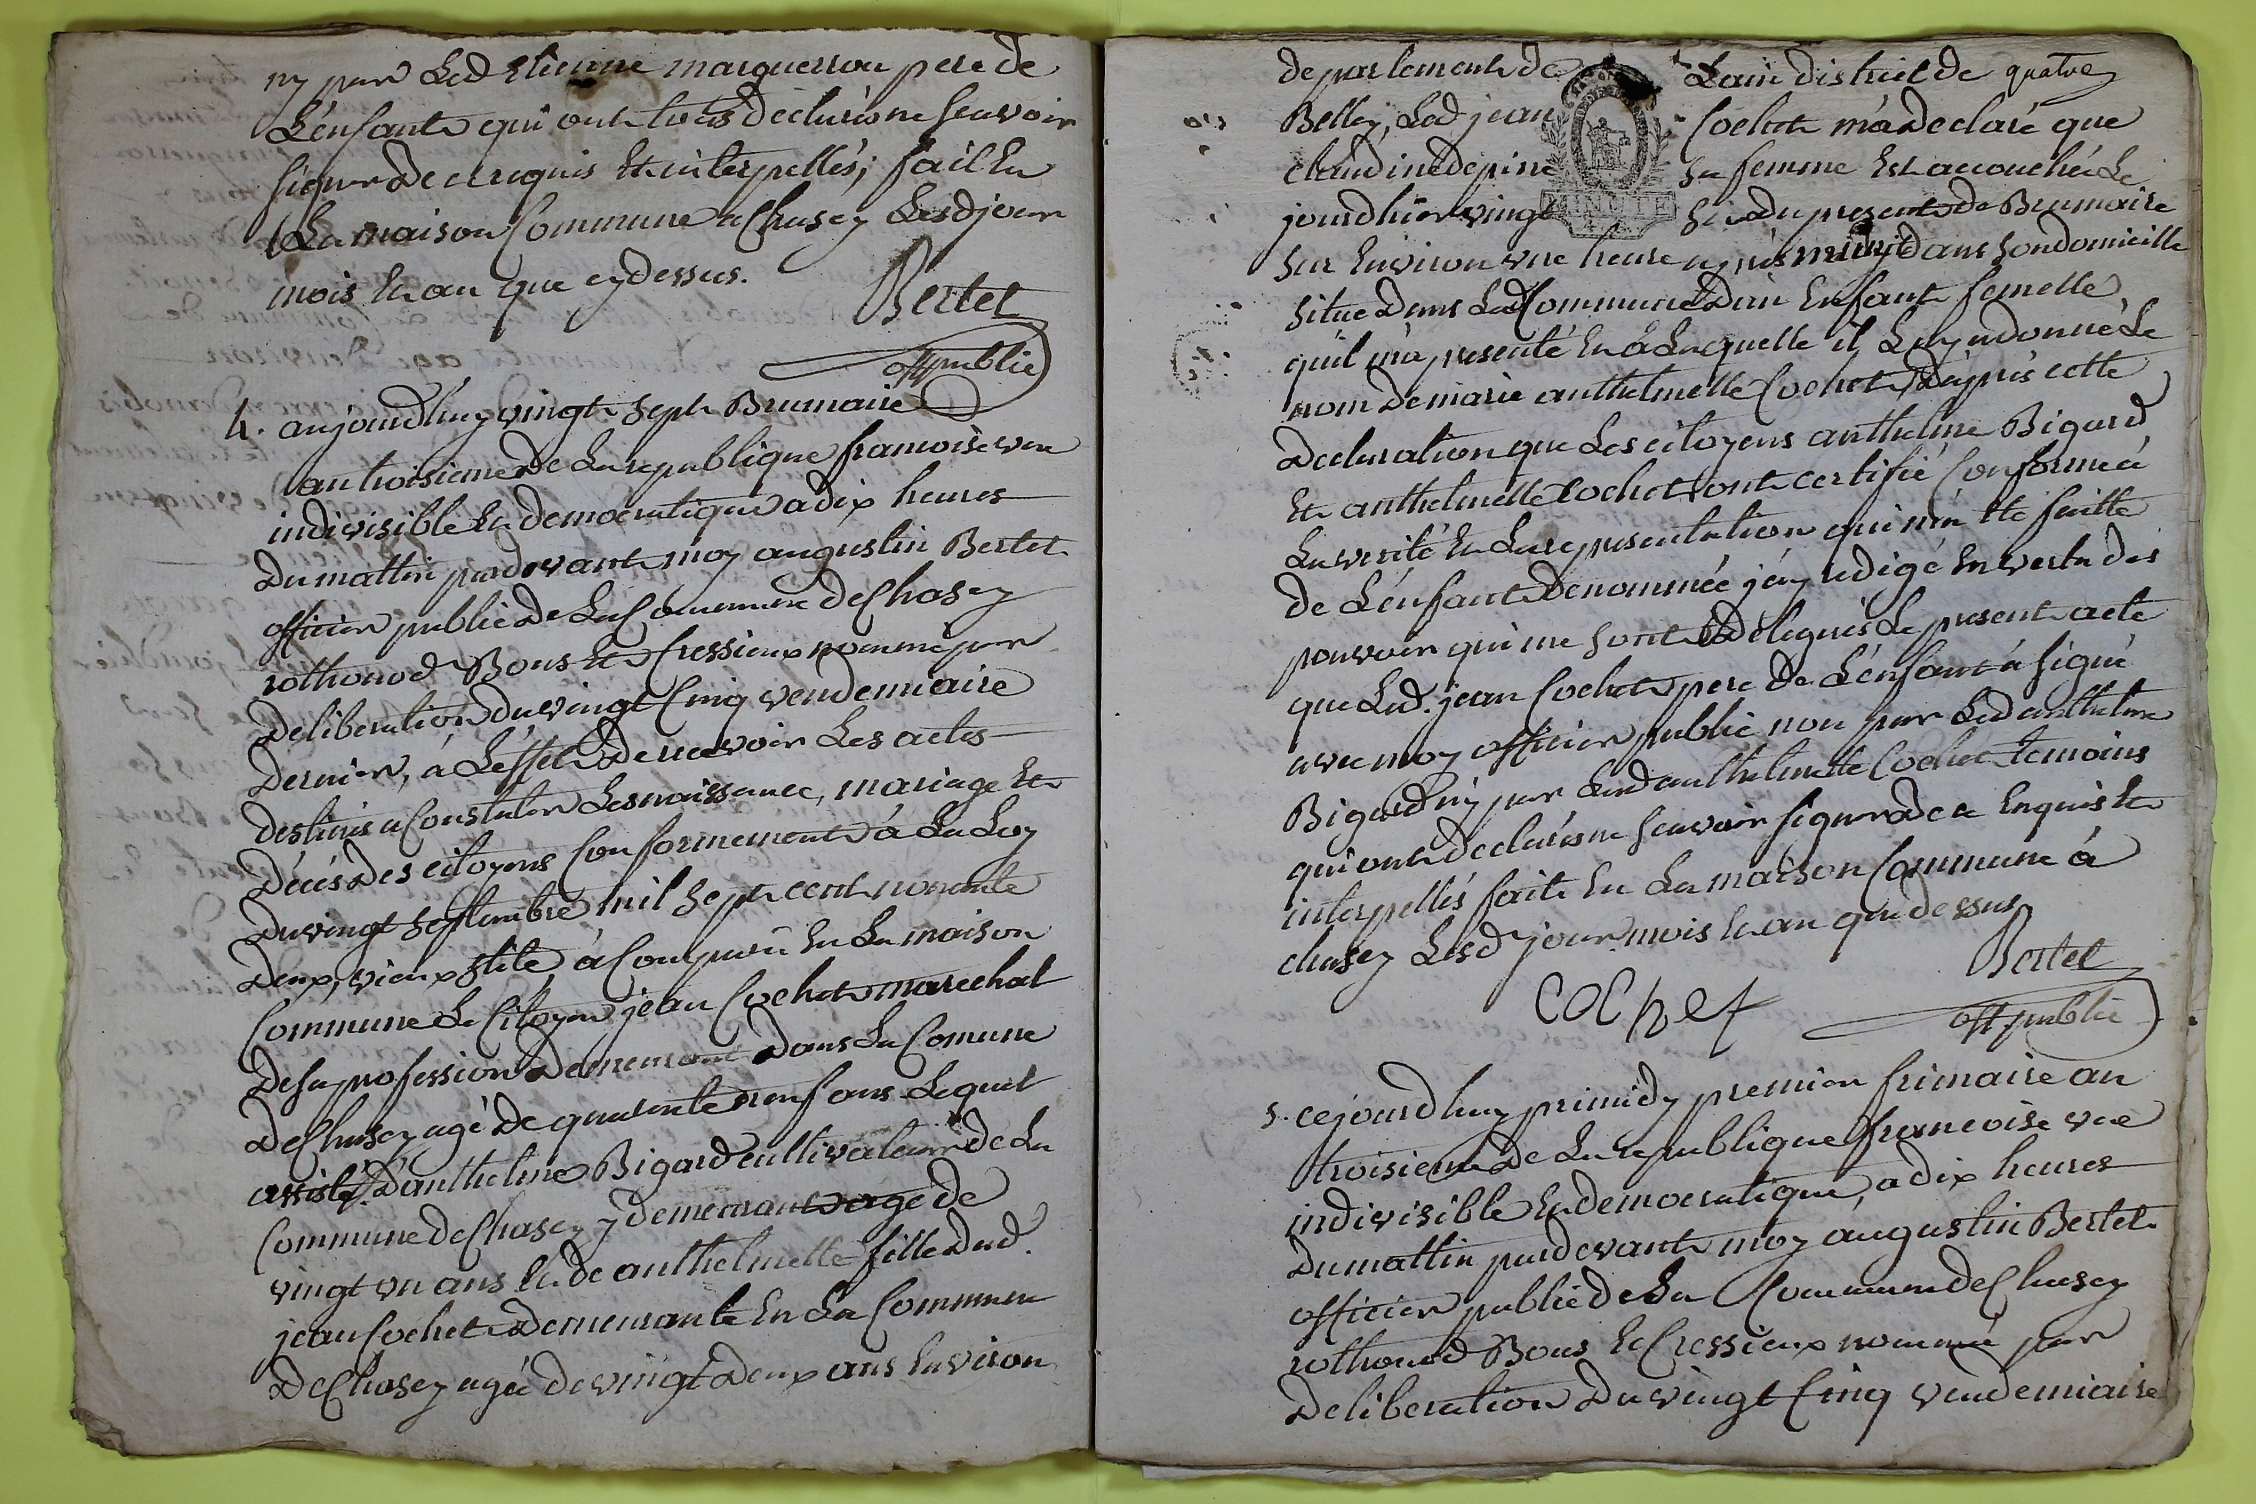 ny par Led Etienne marguerron pere de
L'enfant qui ont tous déclarés ne scavoir
signer de ce requis et interpellés; fait En
La maison Commune a Chasey Lesd jour
mois et an que cydessus.
Bertet
off public
4. aujourdhuy vingt sept Brumaire
an troisieme de La republique francoise une
indivisible et democratique a dix heures
du mattin pardevant moy augustin Bertet
officier public de La Commune de Chasey
rothonod Bons et Cressieux nommé par
deliberation du vingt Cinq vendemiaire
dernier, à L'effet de recevoir Les actes
destinés a Constater Les naissance, mariage et
décés des citoyens Conformement à La Loy
du vingt septembre mil sept cent nonante
deux, vieux stile, à Comparu En La maison
Commune Le Citoyen jean Cochet marechal
de sa profession demeurant dans La Comune
de Chasey agé de quarante neuf ans Lequel
assisté d'anthelme Bigard cultivateur de La
Commune de Chasey y demeurant age de
vingt un ans et de anthelmette fille dud.
jean Cochet demeurante En La Commune
de Chasey agée de vingt deux ans Environ
departement de Lain district de quatre
Belley, Led jean Cochet m'a declaré que
claudine depine sa femme Est accouchée Le
jourdhier vingt six du present de Brumaire
sur Environ une heure après minuit dans son domicille
situé dans Lad Commune d'un Enfant femelle
qu'il m'a presenté et à Laquelle il Luy a donné Le
nom de marie anthelmette Cochet, d'après cette
declaration que Les citoyens anthelme Bigard
et anthelmette Cochet ont certifié Conforme à
La verité et La representation qui m'a été faitte
de L'enfant denommée j'ay redigé En vertu des
pouvoir qui me sont délegués Le present acte
que Led. jean Cochet pere de L'enfant à signé
avec moy officier public non par Led anthelme
Bigard ny par Lad anthelmette Cochet temoins
qui ont declarés ne scavoir signer de ce Enquis et
interpellés fait En La maison Commune à
chasey Lesd jour mois et an que dessus
COCHET
Bertet
off public
5. cejourdhuy primidy premier frimaire an
troisieme de La republique francoise une
indivisible et democratique, a dix heures
du mattin pardevant moy augustin Bertet
officier public de La Commune de Chasey
rothonod Bons et Cressieux nommé par
deliberation du vingt Cinq vendemiaire